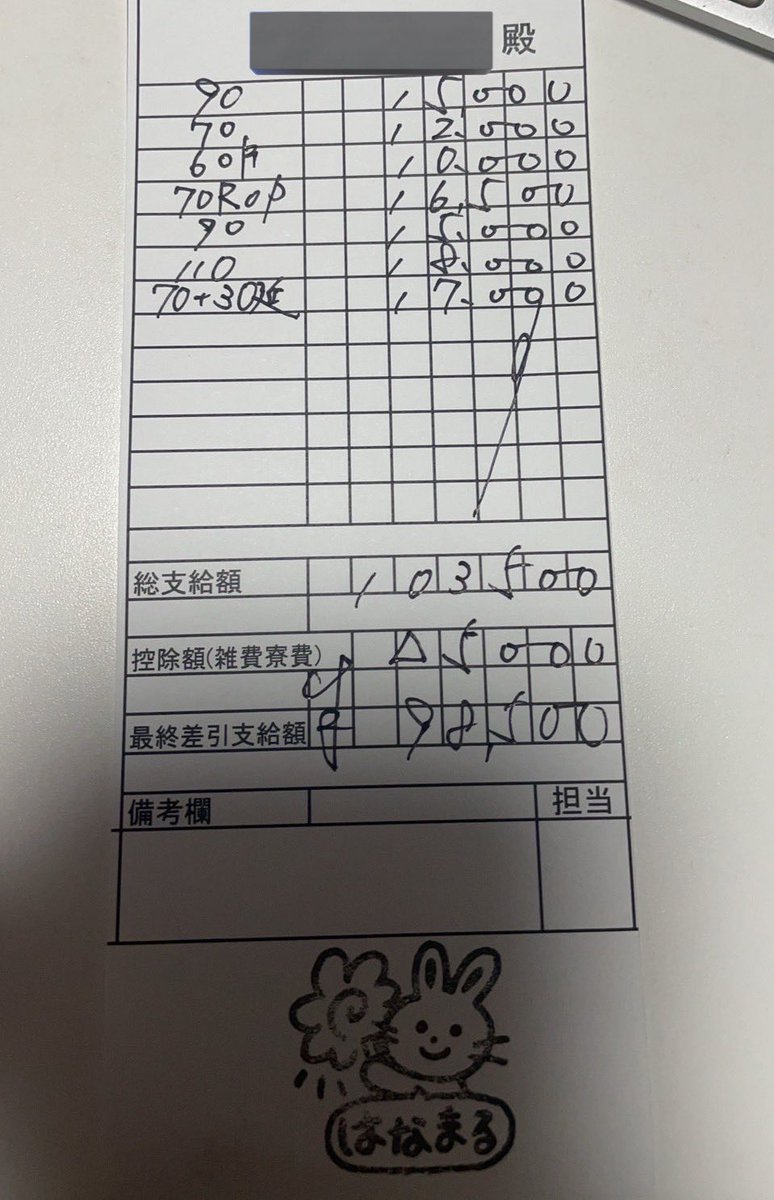 殿
90 15000
70 12.000
60P 10.000
70ROP 16,500
90 15.000
110 18.000
70+30延 17.000
総支給額 103500
控除額(雑費寮費) △5000
最終差引支給額 98,500
備考欄 担当
はなまる